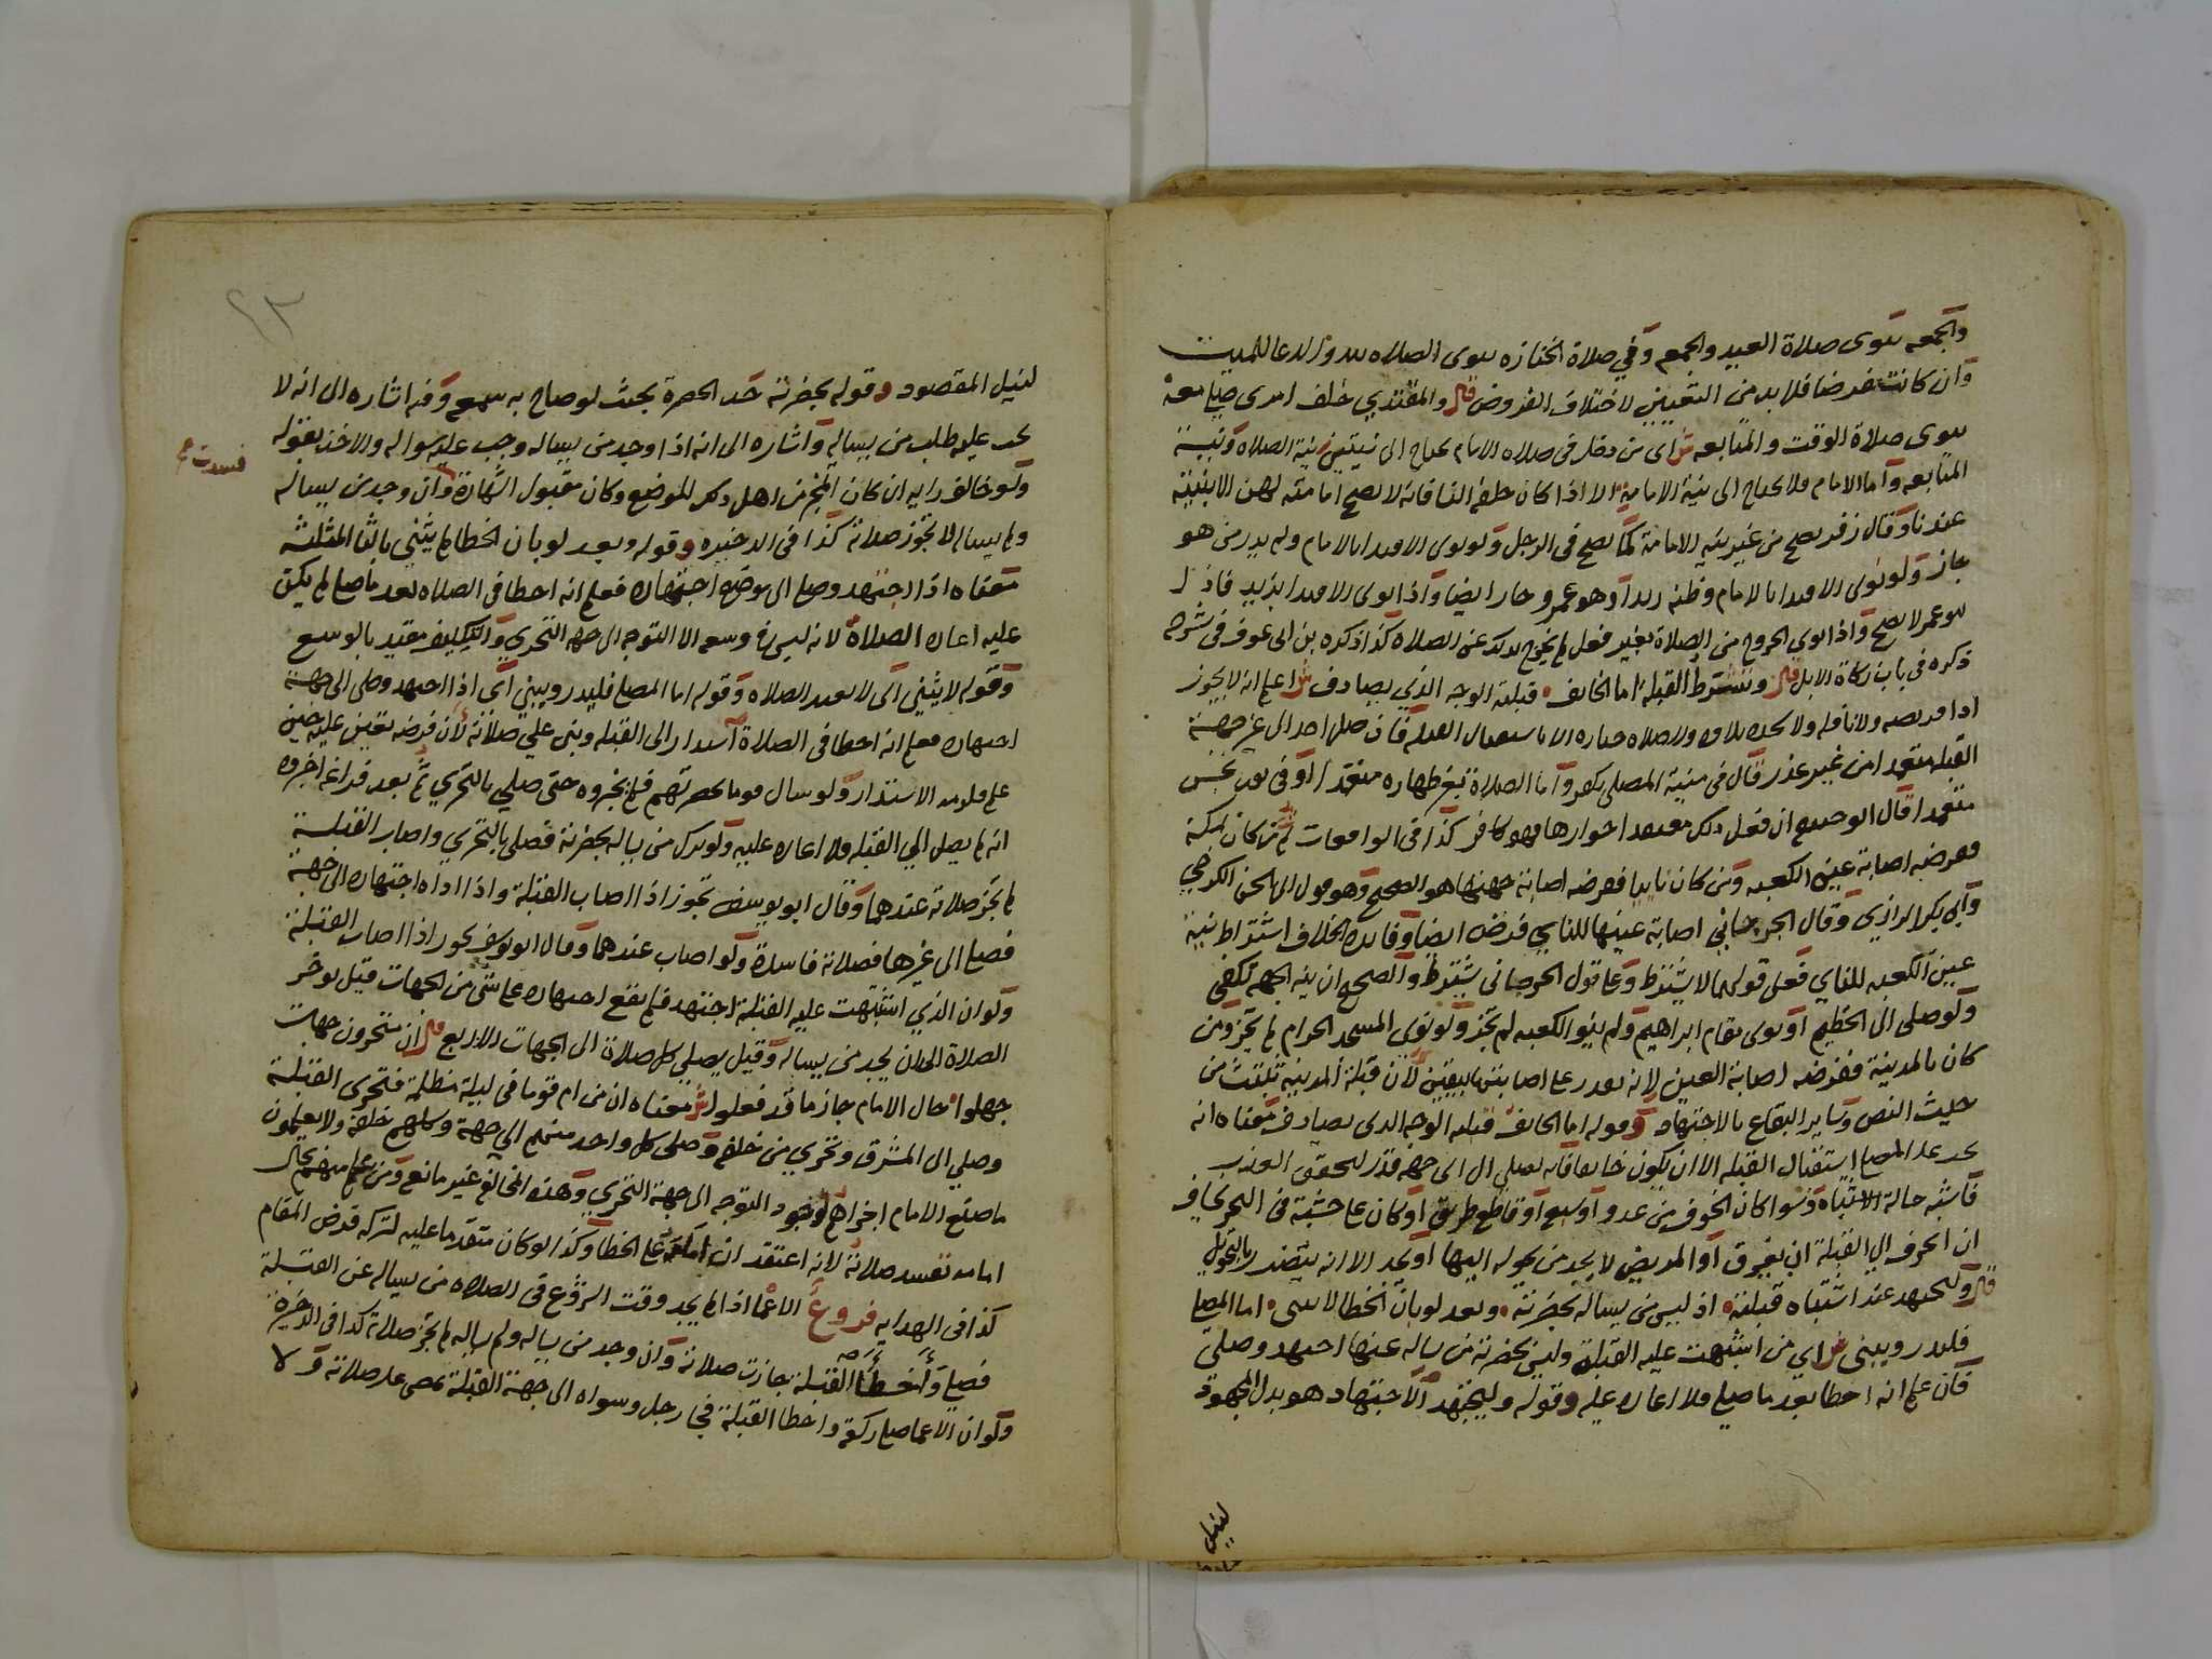 والجمعه ينوى صلاة العيد والجمعه وفي صلاة الجنازه ينوى الصلاه لله والدعا للميت
وان كانت فرضا فلا بد من التعيين لاختلاف الفروض قال والمقتدي خلف امرى صلى معه
ينوى صلاة الوقت والمتابعه ش اى من دخل فى صلاة الامام يحتاج الى نيتين نية الصلاه ونية
المتابعه واما الامام فلا يحتاج الى نية الامامة الا اذا كان خلفه النسا فانه لا يصح امامته لهن الا بنية
عندنا وقال زفر يصح من غير نيه الامامة كما يصح فى الرجل ولو نوى الاقتدا بالامام ولم يدر من هو
جاز ولو نوى الاقتدا بالامام وظنه زيدا وهو عمرو جاز ايضا واذا نوى الاقتدا بزيد فاذا
هو عمر لا يصح واذا نوى الخروج من الصلاة بغير فعل لم يخرج بذلك عن الصلاه كذا ذكره بن ابى عوف فى شرحه
ذكره فى باب زكاة الابل قال وتشترط القبلة اما الخايف قبلته الوجه الذي يصادف ش اعلم انه لا يجوز
ادا فريضه ولا نافله ولا سجده تلاوه ولا صلاه جنازه الا باستقبال القبله فان صلى احد الى غير جهة
القبله متعمدا من غير عذر قال فى منية المصلى يكفر واما الصلاة بغير طهاره متعمدا او فى ثوب نجس
متعمدا قال ان فعل ذلك معتقدا جوازها فهو كافر كذا فى الواقعات ثم من كان بمكة
ففرضه اصابة عين الكعبه ومن كان نايبا ففرضه اصابة جهتها هو الصحيح وهو قول ابى الحسن الكرخي
وابى بكر الرازي وقال الجرجاني اصابة عينها للنايي فرض ايضا وفايدة الخلاف اشتراط نية
عين الكعبه للنايي فعلى قولهما لا يشترط وعلى قول الجرجانى يشترط والصحيح ان نية الجهه تكفى
ولو صلى الى الحطيم او نوى مقام ابراهيم ولم ينو الكعبه لم تجز ولو نوى المسجد الحرام لم تجز ومن
كان بالمدينة ففرضه اصابة العين لانه يقدر على اصابتها بيقين لان قبلة المدينة تلقت من
حيث النص وساير البقاع بالاجتهاد وقوله اما الخايف قبلته الوجه الذى يصادف معناه انه
يجب على المصلى استقبال القبله الا ان يكون خايفا فانه يصلى الى اى جهه قدر لتحقق العذر
فاشبه حالة الاشتباه وسوا كان الخوف من عدو او سبع او قاطع طريق او كان على خشبة فى البحر يخاف
ان انحرف الي القبلة ان يغرق او المريض لا يجد من يحوله اليها او يجد الا انه يتضرر بالتحويل
قال وليجتهد عند اشتباه قبلته اذ ليس من يساله بحضرته وبعد لو بان الخطا لا يثنى اما المصلى
فليدر ويبنى ش اي من اشتبهت عليه القبلة وليس بحضرته من يساله عنها اجتهد وصلى
فان علم انه اخطا بعد ما صلى فلا اعاده عليه وقوله وليجتهد الاجتهاد هو بذل المجهود
لنيل
لنيل المقصود وقوله بحضرته حد الحضرة بحيث لو صاح به سمع وفيه اشاره الى انه لا
يجب عليه طلب من يساله واشاره الى انه اذا وجد من يساله وجب عليه سواله والاخذ بقوله
ولو خالف رايه ان كان المخبر من اهل ذلك الموضع وكان مقبول الشهادة وان وجد من يساله
فسدت
ولم يساله لا تجوز صلاته كذا فى الذخيره وقوله وبعد لو بان الخطا لم يثنى بالثا المثلثه
معناه اذا اجتهد وصلى الى موضع اجتهاده فعلم انه اخطا فى الصلاه بعد ما صلى لم يكن
عليه اعادة الصلاة لانه ليس فى وسعه الا التوجه الى جهه التحري والتكليف مقيد بالوسع
وقوله لا يثني اى لا يعيد الصلاه وقوله اما المصلى فليدر ويبني اى اذا اجتهد وصلى الى جهة
اجتهاده فعلم انه اخطا فى الصلاة استدار الى القبله وبنى علي صلاته لان فرضه تعين عليه حين
علم فلزمه الاستدار ولو سال قوما بحضرتهم فلم يخبروه حتى صلي بالتحري ثم بعد فراغه اخبروه
انه لم يصل الي القبله فلا اعاده عليه ولو ترك من يساله بحضرته فصلى بالتحري واصاب القبلة
لم تجز صلاته عندهما وقال ابو يوسف تجوز اذا اصاب القبلة واذا اداه اجتهاده الى جهة
فصلى الى غيرها فصلاته فاسدة ولو اصاب عندهما وقال ابو يوسف يجوز اذا اصاب القبلة
ولو ان الذي اشتبهت عليه القبلة اجتهد فلم يقع اجتهاده على شى من الجهات قيل يوخر
الصلاة الى ان يجد من يساله وقيل يصلي كل صلاة الى الجهات الاربع قال ان تتحرون جهات
جهلوا حال الامام جاز ما قد فعلوا ش معناه ان من ام قوما فى ليلة مظلمة فتحرى القبلة
وصلي الى المشرق وتحري من خلفه وصلى كل واحد منهم الي جهة وكلهم خلفه ولا يعلمون
ما صنع الامام اجزاهم لوجود التوجه الى جهة التحري وهذه المخالفة غير مانعه ومن علم منهم بحال
امامه تفسد صلاته لانه اعتقد ان امامه على الخطا وكذا لو كان متقدما عليه لتركه فرض المقام
كذا فى الهدايه فروع الاعما اذا لم يجد وقت الشروع فى الصلاه من يساله عن القبلة
فصلى واخطا القبلة جازت صلاته وان وجد من يساله ولم يساله لم تجز صلاته كذا فى الذخيرة
ولو ان الاعما صلى ركعة واخطا القبلة فجا رجل وسواه الى جهة القبلة يمضى على صلاته ولا